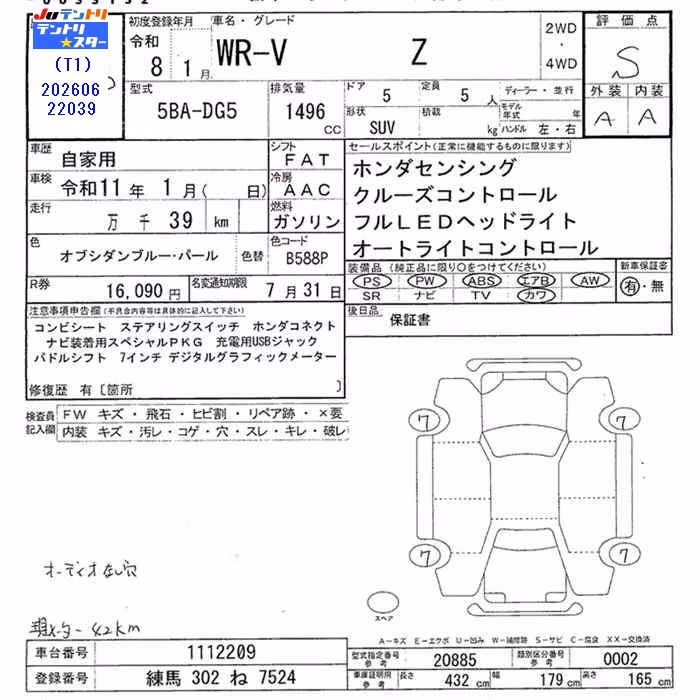 Juテントリ
テントリ★スター
(T1)
202606
22039
初度登録年月
令和
8 1月
車名・グレード
WR-V Z
2WD
・
4WD
評価点
S
外装 内装
A A
型式
5BA-DG5
排気量
1496
CC
ドア
5
定員
5 人
形状
SUV
積載
kg
ディーラー・並行
モデル年式 年
ハンドル 左・右
車歴
自家用
シフト
FAT
車検
令和11年 1月( 日)
冷房
AAC
走行
万 千 39 km
燃料
ガソリン
色
オブシダンブルー・パール
色替
色コード
B588P
R券
16,090円
名変通知期限
7月31日
セールスポイント(正常に機能するものに限ります)
ホンダセンシング
クルーズコントロール
フルLEDヘッドライト
オートライトコントロール
装備品(純正品に限り○をつけてください)
PS PW ABS エアB AW
SR ナビ TV カワ
新車保証書
有・無
後日品
保証書
注意事項申告欄(不具合内容等は具体的に記入して下さい)
コンビシート ステアリングスイッチ ホンダコネクト
ナビ装着用スペシャルPKG 充電用USBジャック
パドルシフト 7インチ デジタルグラフィックメーター
修復歴 有〔箇所 〕
検査員記入欄
FW キズ・飛石・ヒビ割・リペア跡・×要
内装 キズ・汚レ・コゲ・穴・スレ・キレ・破レ
7 7
7 7
オーディオ無し穴
現メーター 42km
スペア
A-キズ E-エクボ U-凹み W-補修跡 S-サビ C-腐食 XX-交換済
車台番号
1112209
登録番号
練馬 302 ね 7524
型式指定番号
参考
20885
類別区分番号
参考
0002
車庫証明用
参考
長さ 432 cm 幅 179 cm 高さ 165 cm